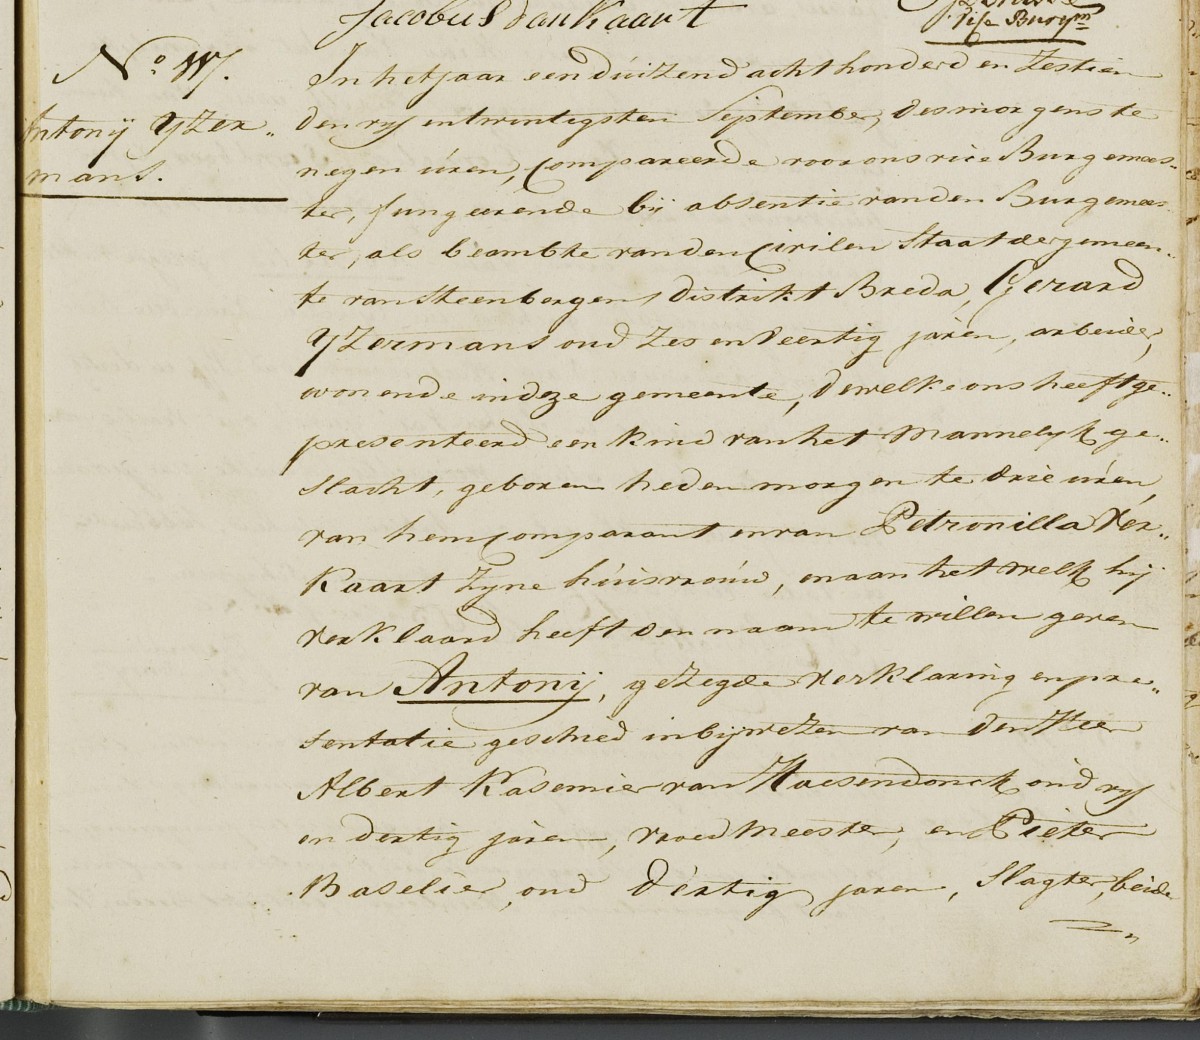 Jacobus Dankaart
Vice Burgm
No 117.
Antonij Yzer„
mans.
In het jaar een duizend acht honderd en Zestien
den vyf en twentigsten September, des morgens te
negen uren, Compareerde voor ons vice Burgemees„
ter, fungeerende bij absentie van den Burgemees„
ter, als beambte van den Civilen Staat der gemeen„
te van Steenbergen, distrikt Breda, Gerard
Yzermans oud Zes en Veertig jaren, arbeider,
wonende in deze gemeente, dewelke ons heeft ge„
presenteerd een kind van het Mannelyk ge„
slacht, geboren heden morgen te drie uren,
van hem comparant en van Petronilla Ver„
Kaart Zyne huisvrouw, en aan het welk hij
verklaard heeft den naam te willen geven
van Antonij, gezegde verklaring en pre„
sentatie geschied in bijwezen van den Heer
Albert Kasemier van Haesendonck oud vyf
en dertig jaren, vroedmeester, en Pieter
Baselier, oud dertig jaren, Slagter, beide